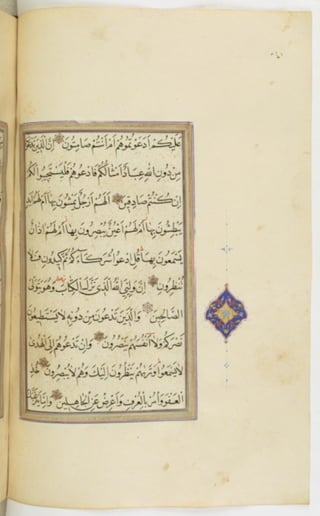 عَلَيْكُمْ أَدَعَوْتُمُوهُمْ أَمْ أَنْتُمْ صَامِتُونَ إِنَّ الَّذِينَ تَدْعُونَ
مِنْ دُونِ اللَّهِ عِبَادٌ أَمْثَالُكُمْ فَادْعُوهُمْ فَلْيَسْتَجِيبُوا لَكُمْ
إِنْ كُنْتُمْ صَادِقِينَ أَلَهُمْ أَرْجُلٌ يَمْشُونَ بِهَا أَمْ لَهُمْ أَيْدٍ
يَبْطِشُونَ بِهَا أَمْ لَهُمْ أَعْيُنٌ يُبْصِرُونَ بِهَا أَمْ لَهُمْ آذَانٌ
يَسْمَعُونَ بِهَا قُلِ ادْعُوا شُرَكَاءَكُمْ ثُمَّ كِيدُونِ فَلَا
تُنْظِرُونِ إِنَّ وَلِيِّيَ اللَّهُ الَّذِي نَزَّلَ الْكِتَابَ وَهُوَ يَتَوَلَّى
الصَّالِحِينَ وَالَّذِينَ تَدْعُونَ مِنْ دُونِهِ لَا يَسْتَطِيعُونَ
نَصْرَكُمْ وَلَا أَنْفُسَهُمْ يَنْصُرُونَ وَإِنْ تَدْعُوهُمْ إِلَى الْهُدَى
لَا يَسْمَعُوا وَتَرَاهُمْ يَنْظُرُونَ إِلَيْكَ وَهُمْ لَا يُبْصِرُونَ خُذِ
الْعَفْوَ وَأْمُرْ بِالْعُرْفِ وَأَعْرِضْ عَنِ الْجَاهِلِينَ وَإِمَّا يَنْزَغَنَّكَ